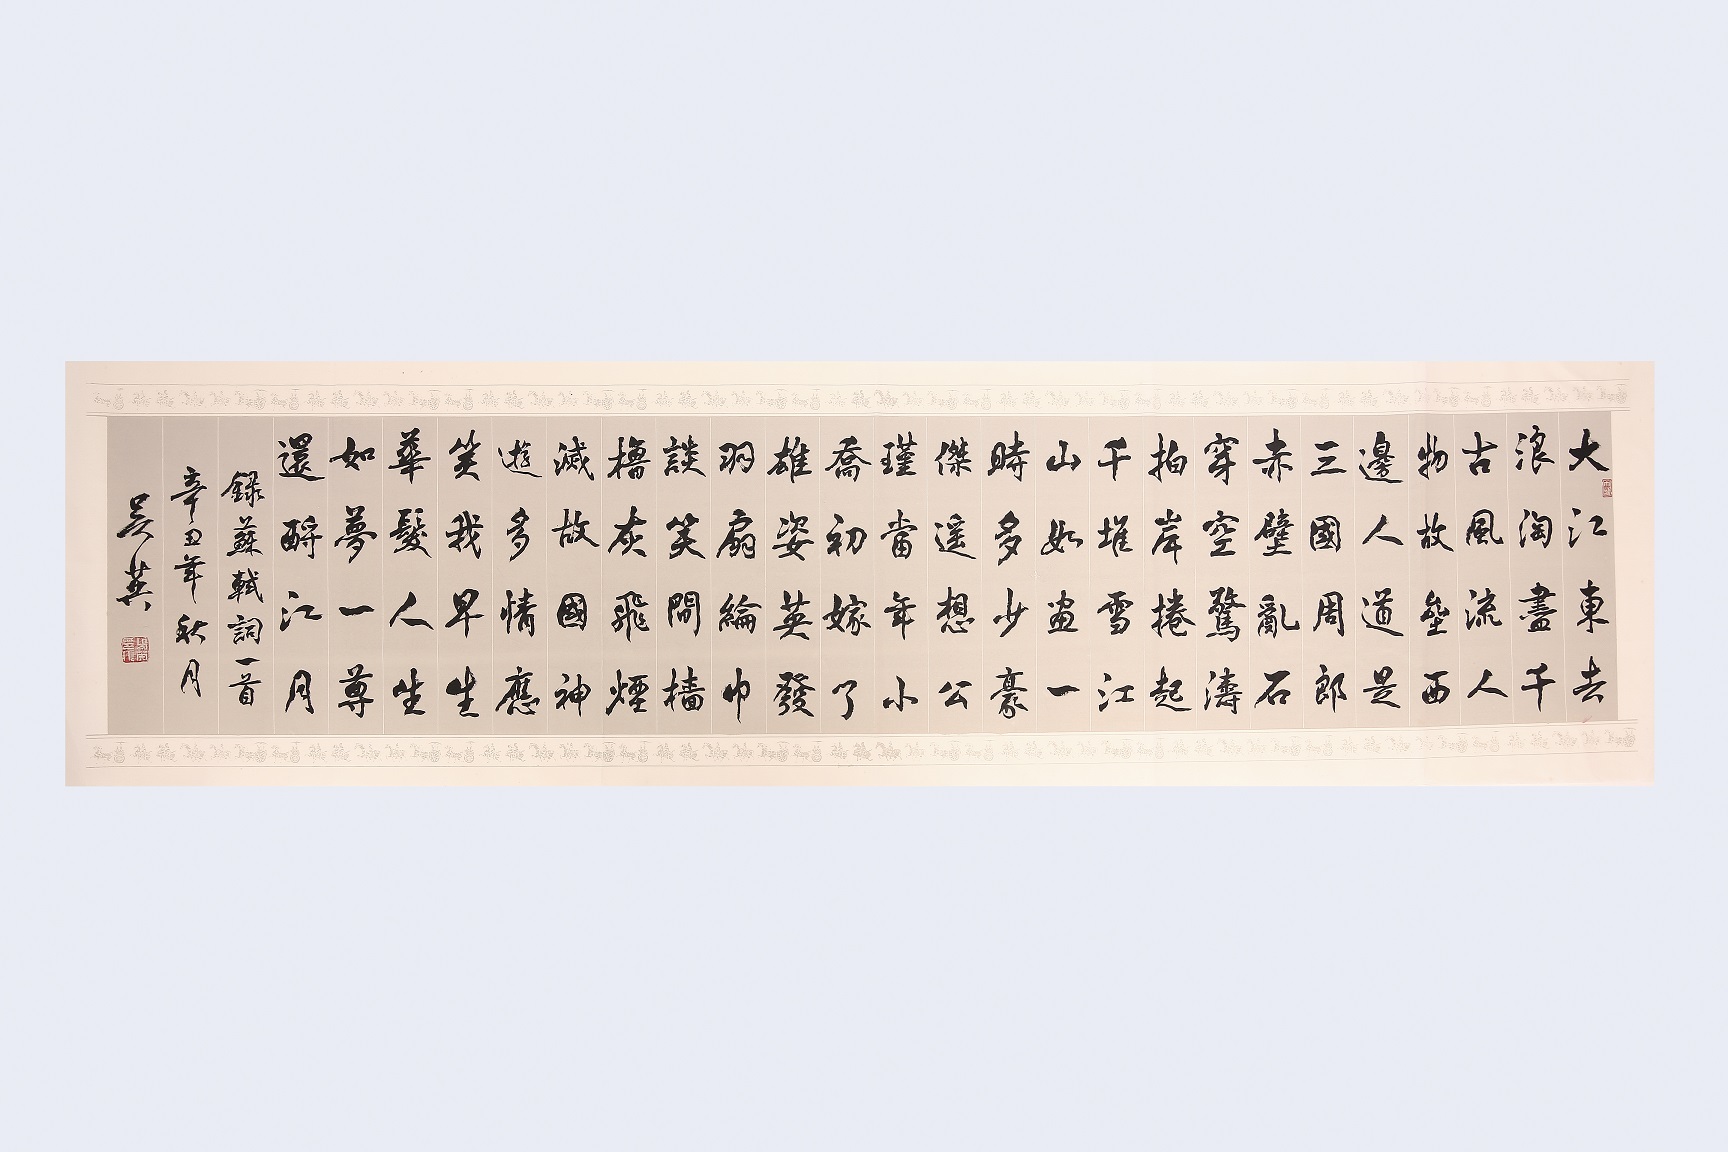 大江東去
浪淘盡千
古風流人
物故壘西
邊人道是
三國周郎
赤壁亂石
穿空驚濤
拍岸捲起
千堆雪江
山如畫一
時多少豪
傑遥想公
瑾當年小
喬初嫁了
雄姿英發
羽扇綸巾
談笑間檣
櫓灰飛煙
滅故國神
遊多情應
笑我早生
華髮人生
如夢一尊
還酹江月
錄蘇軾詞一首
辛丑年秋月
吴英